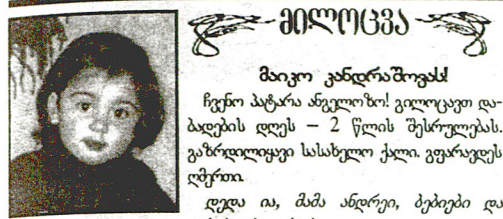 მილოცვა
მაიკო კანდრაშოვას!
ჩვენო პატარა ანგელოზო! გილოცავთ და-
ბადების დღეს – 2 წლის შესრულებას.
გაზრდილიყავი სასახელო ქალი. გფარავდეს
ღმერთი.
დედა ია, მამა ანდრეი, ბებიები და